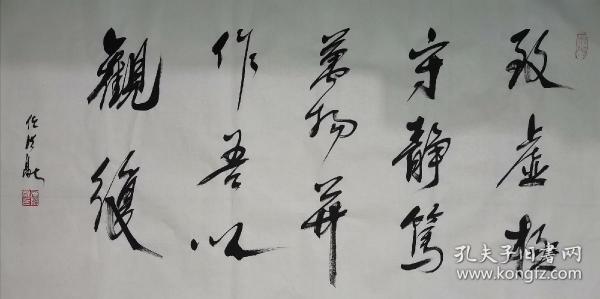 致虚極
守靜篤
萬物并
作吾以
觀復
任法融
孔夫子旧书网
www.kongfz.com